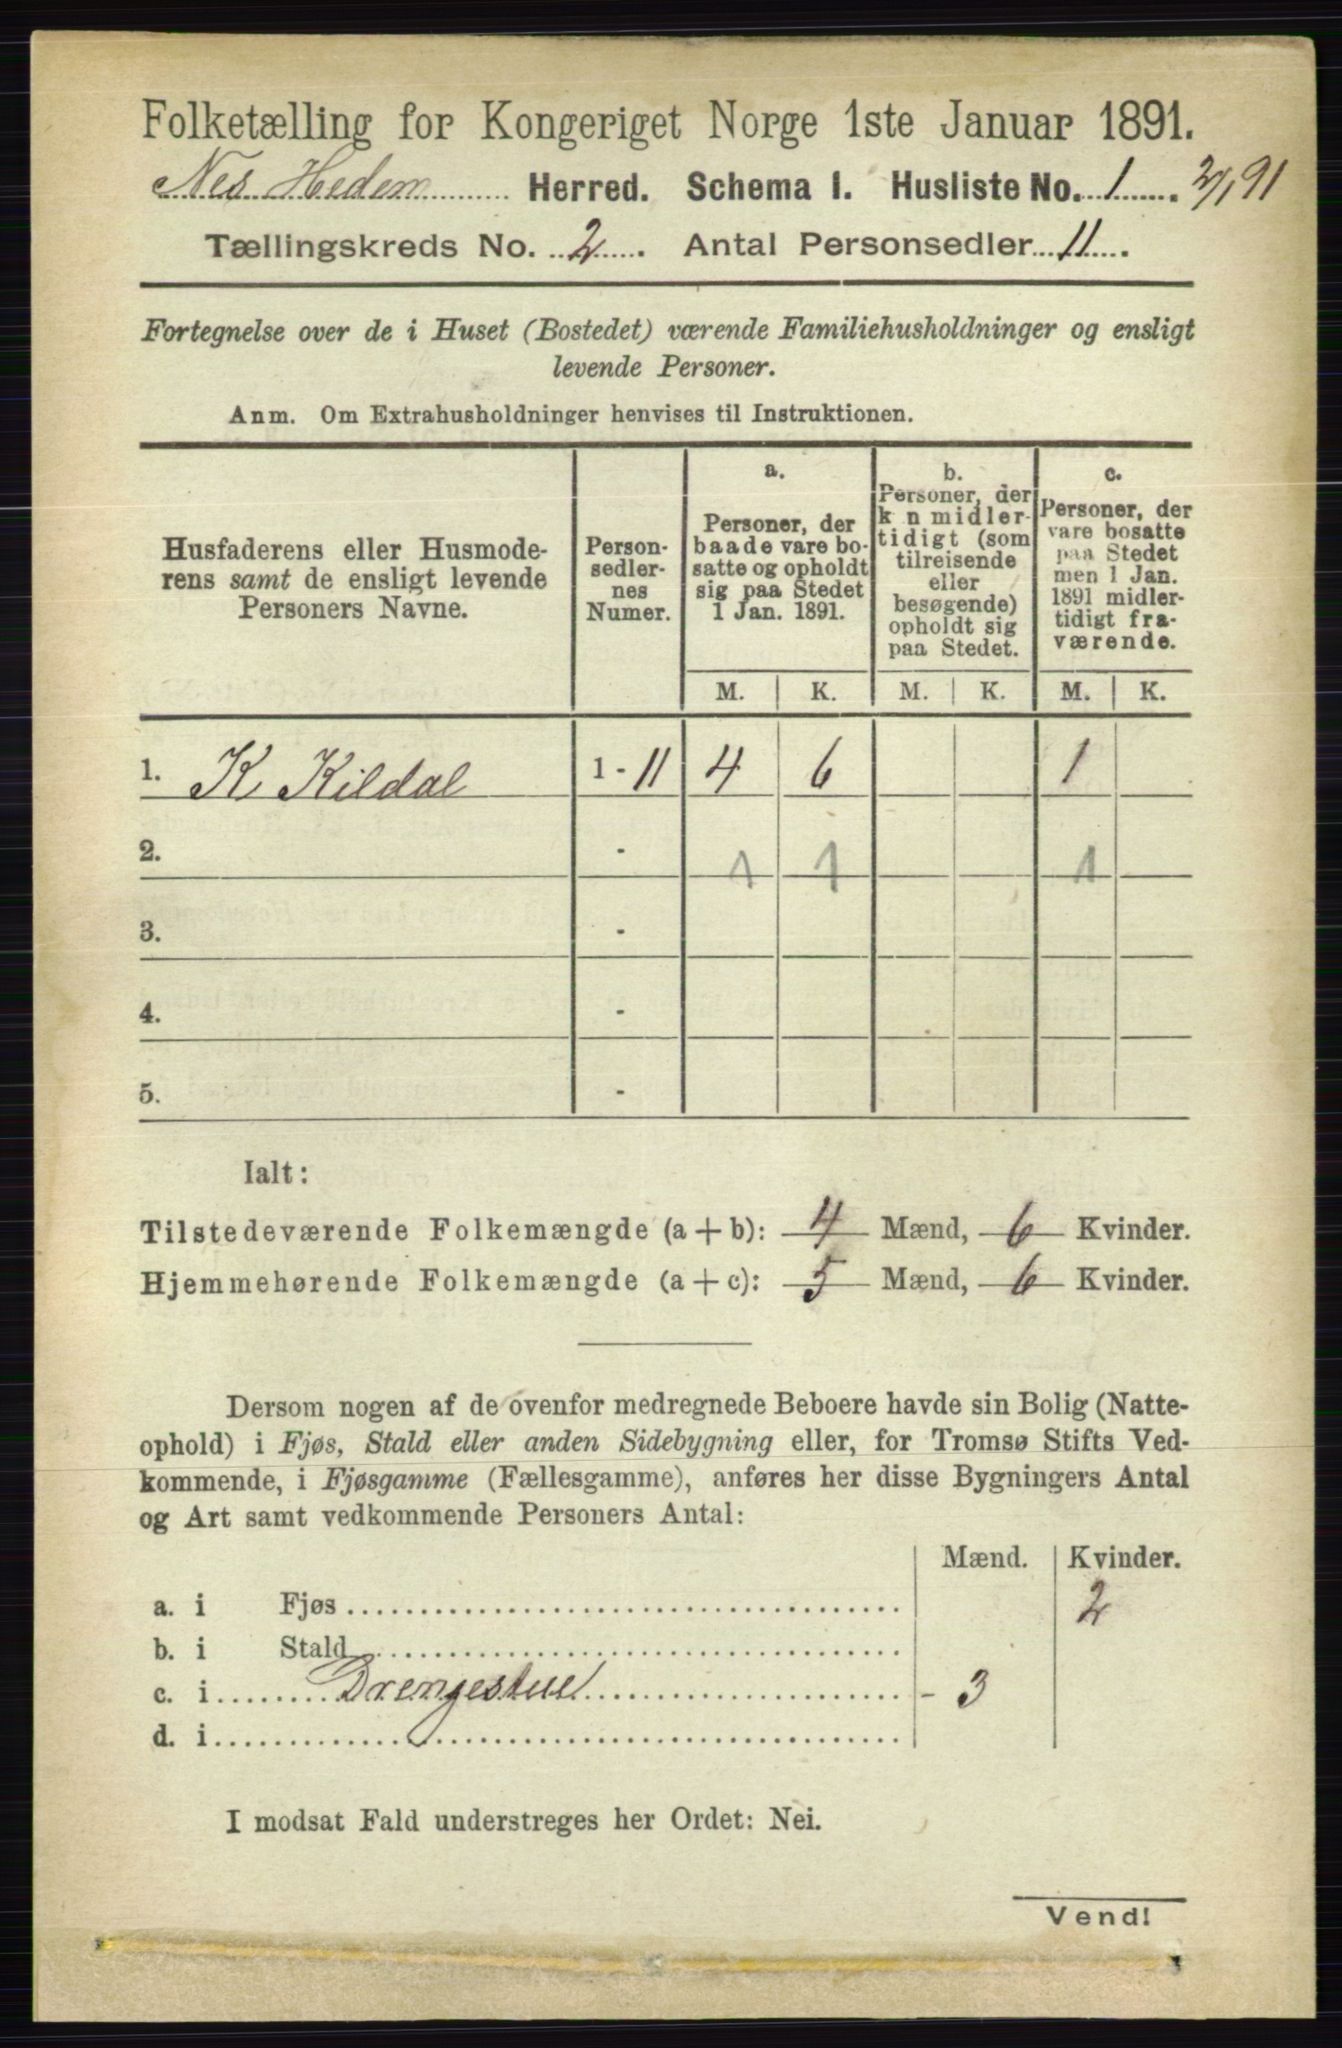 Folketælling for Kongeriget Norge 1ste Januar 1891.
Nes Hedem Herred. Schema I. Husliste No. 1. 2/1 91
Tællingskreds No. 2. Antal Personsedler 11.
Fortegnelse over de i Huset (Bostedet) værende Familiehusholdninger og ensligt
levende Personer.
Anm. Om Extrahusholdninger henvises til Instruktionen.
Husfaderens eller Husmode-
rens samt de ensligt levende
Personers Navne.
Person-
sedler-
nes
Numer.
a.
Personer, der
baade vare bo-
satte og opholdt
sig paa Stedet
1 Jan. 1891.
b.
Personer, der
k n midler-
tidigt (som
tilreisende
eller
besøgende)
opholdt sig
paa Stedet.
c.
Personer, der
vare bosatte
paa Stedet
men 1 Jan.
1891 midler-
tidigt fra-
værende.
M. K. M. K. M. K.
1. K Kildal 1 - 11 4 6 1
2. - 1 1 1
3. -
4. -
5. -
Ialt:
Tilstedeværende Folkemængde (a + b): 4 Mænd, 6 Kvinder.
Hjemmehørende Folkemængde (a + c): 5 Mænd, 6 Kvinder.
Dersom nogen af de ovenfor medregnede Beboere havde sin Bolig (Natte-
ophold) i Fjøs, Stald eller anden Sidebygning eller, for Tromsø Stifts Ved-
kommende, i Fjøsgamme (Fællesgamme), anføres her disse Bygningers Antal
og Art samt vedkommende Personers Antal:
Mænd. Kvinder.
a. i Fjøs 2
b. i Stald
c. i Drengestue - 3
d. i
I modsat Fald understreges her Ordet: Nei.
Vend!